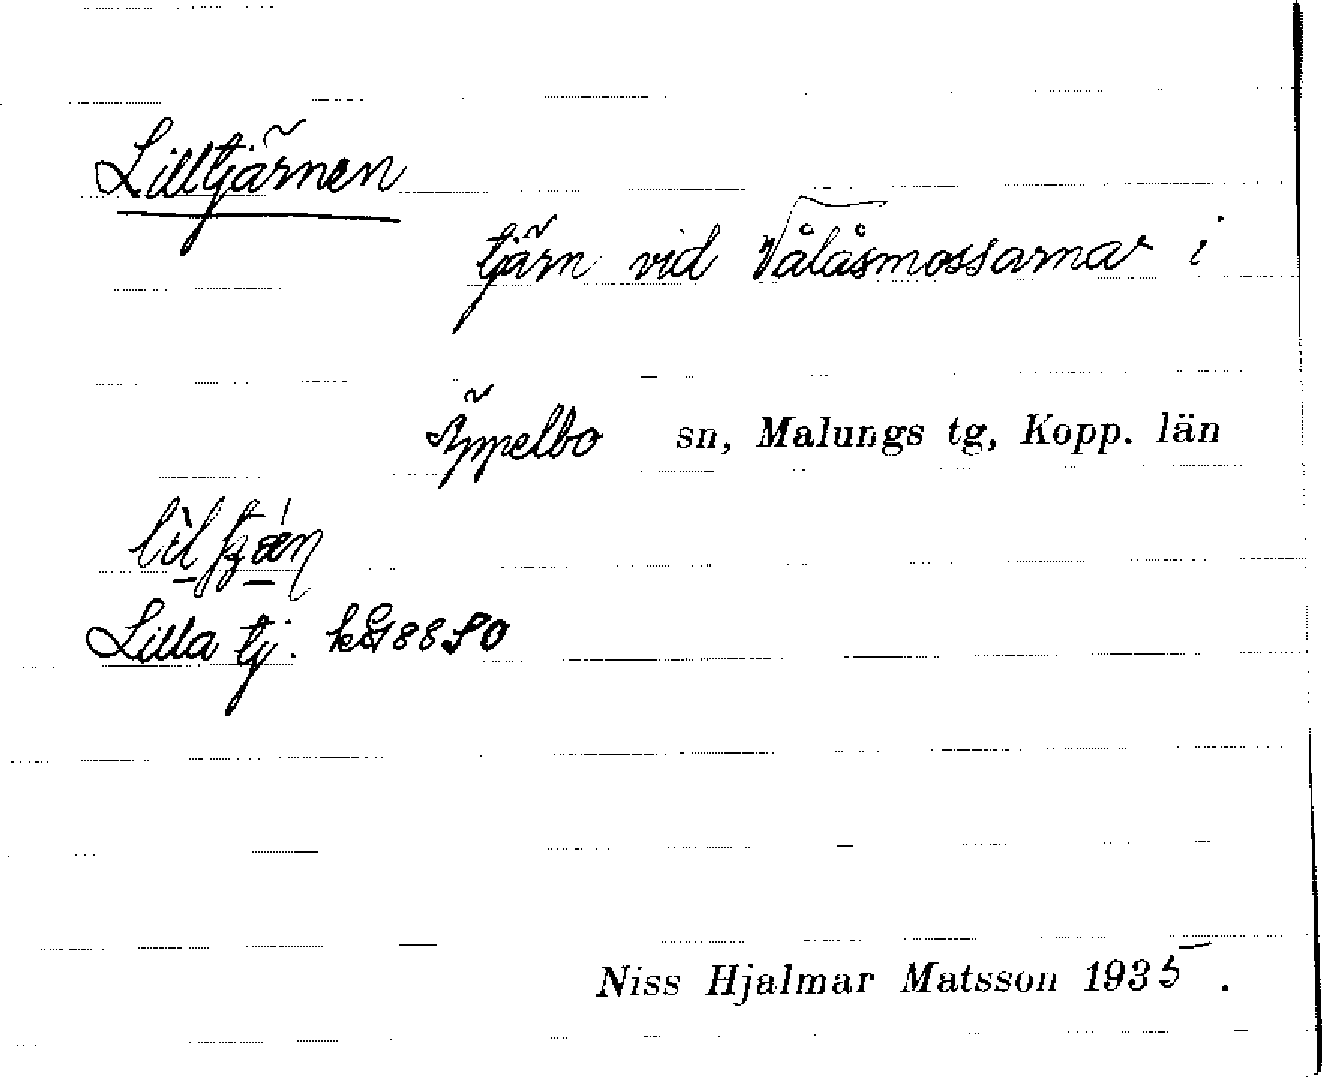 Lilltjärnen
tjärn vid Vålåsmossarna i
Äppelbo sn, Malungs tg, Kopp. län
Lilla tj.
Niss Hjalmar Matsson 1935.